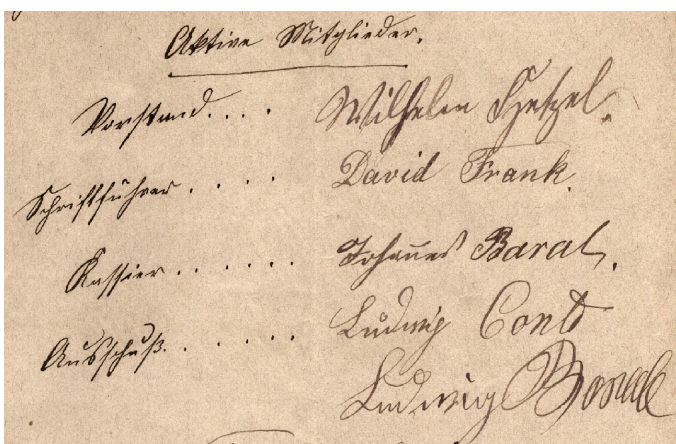 Aktive Mitglieder.
Vorstand.... Wilhelm Hetzel.
Schriftführer.... David Frank.
Kassier...... Johannes Baral.
Ausschuß...... Ludwig Cont
Ludwig